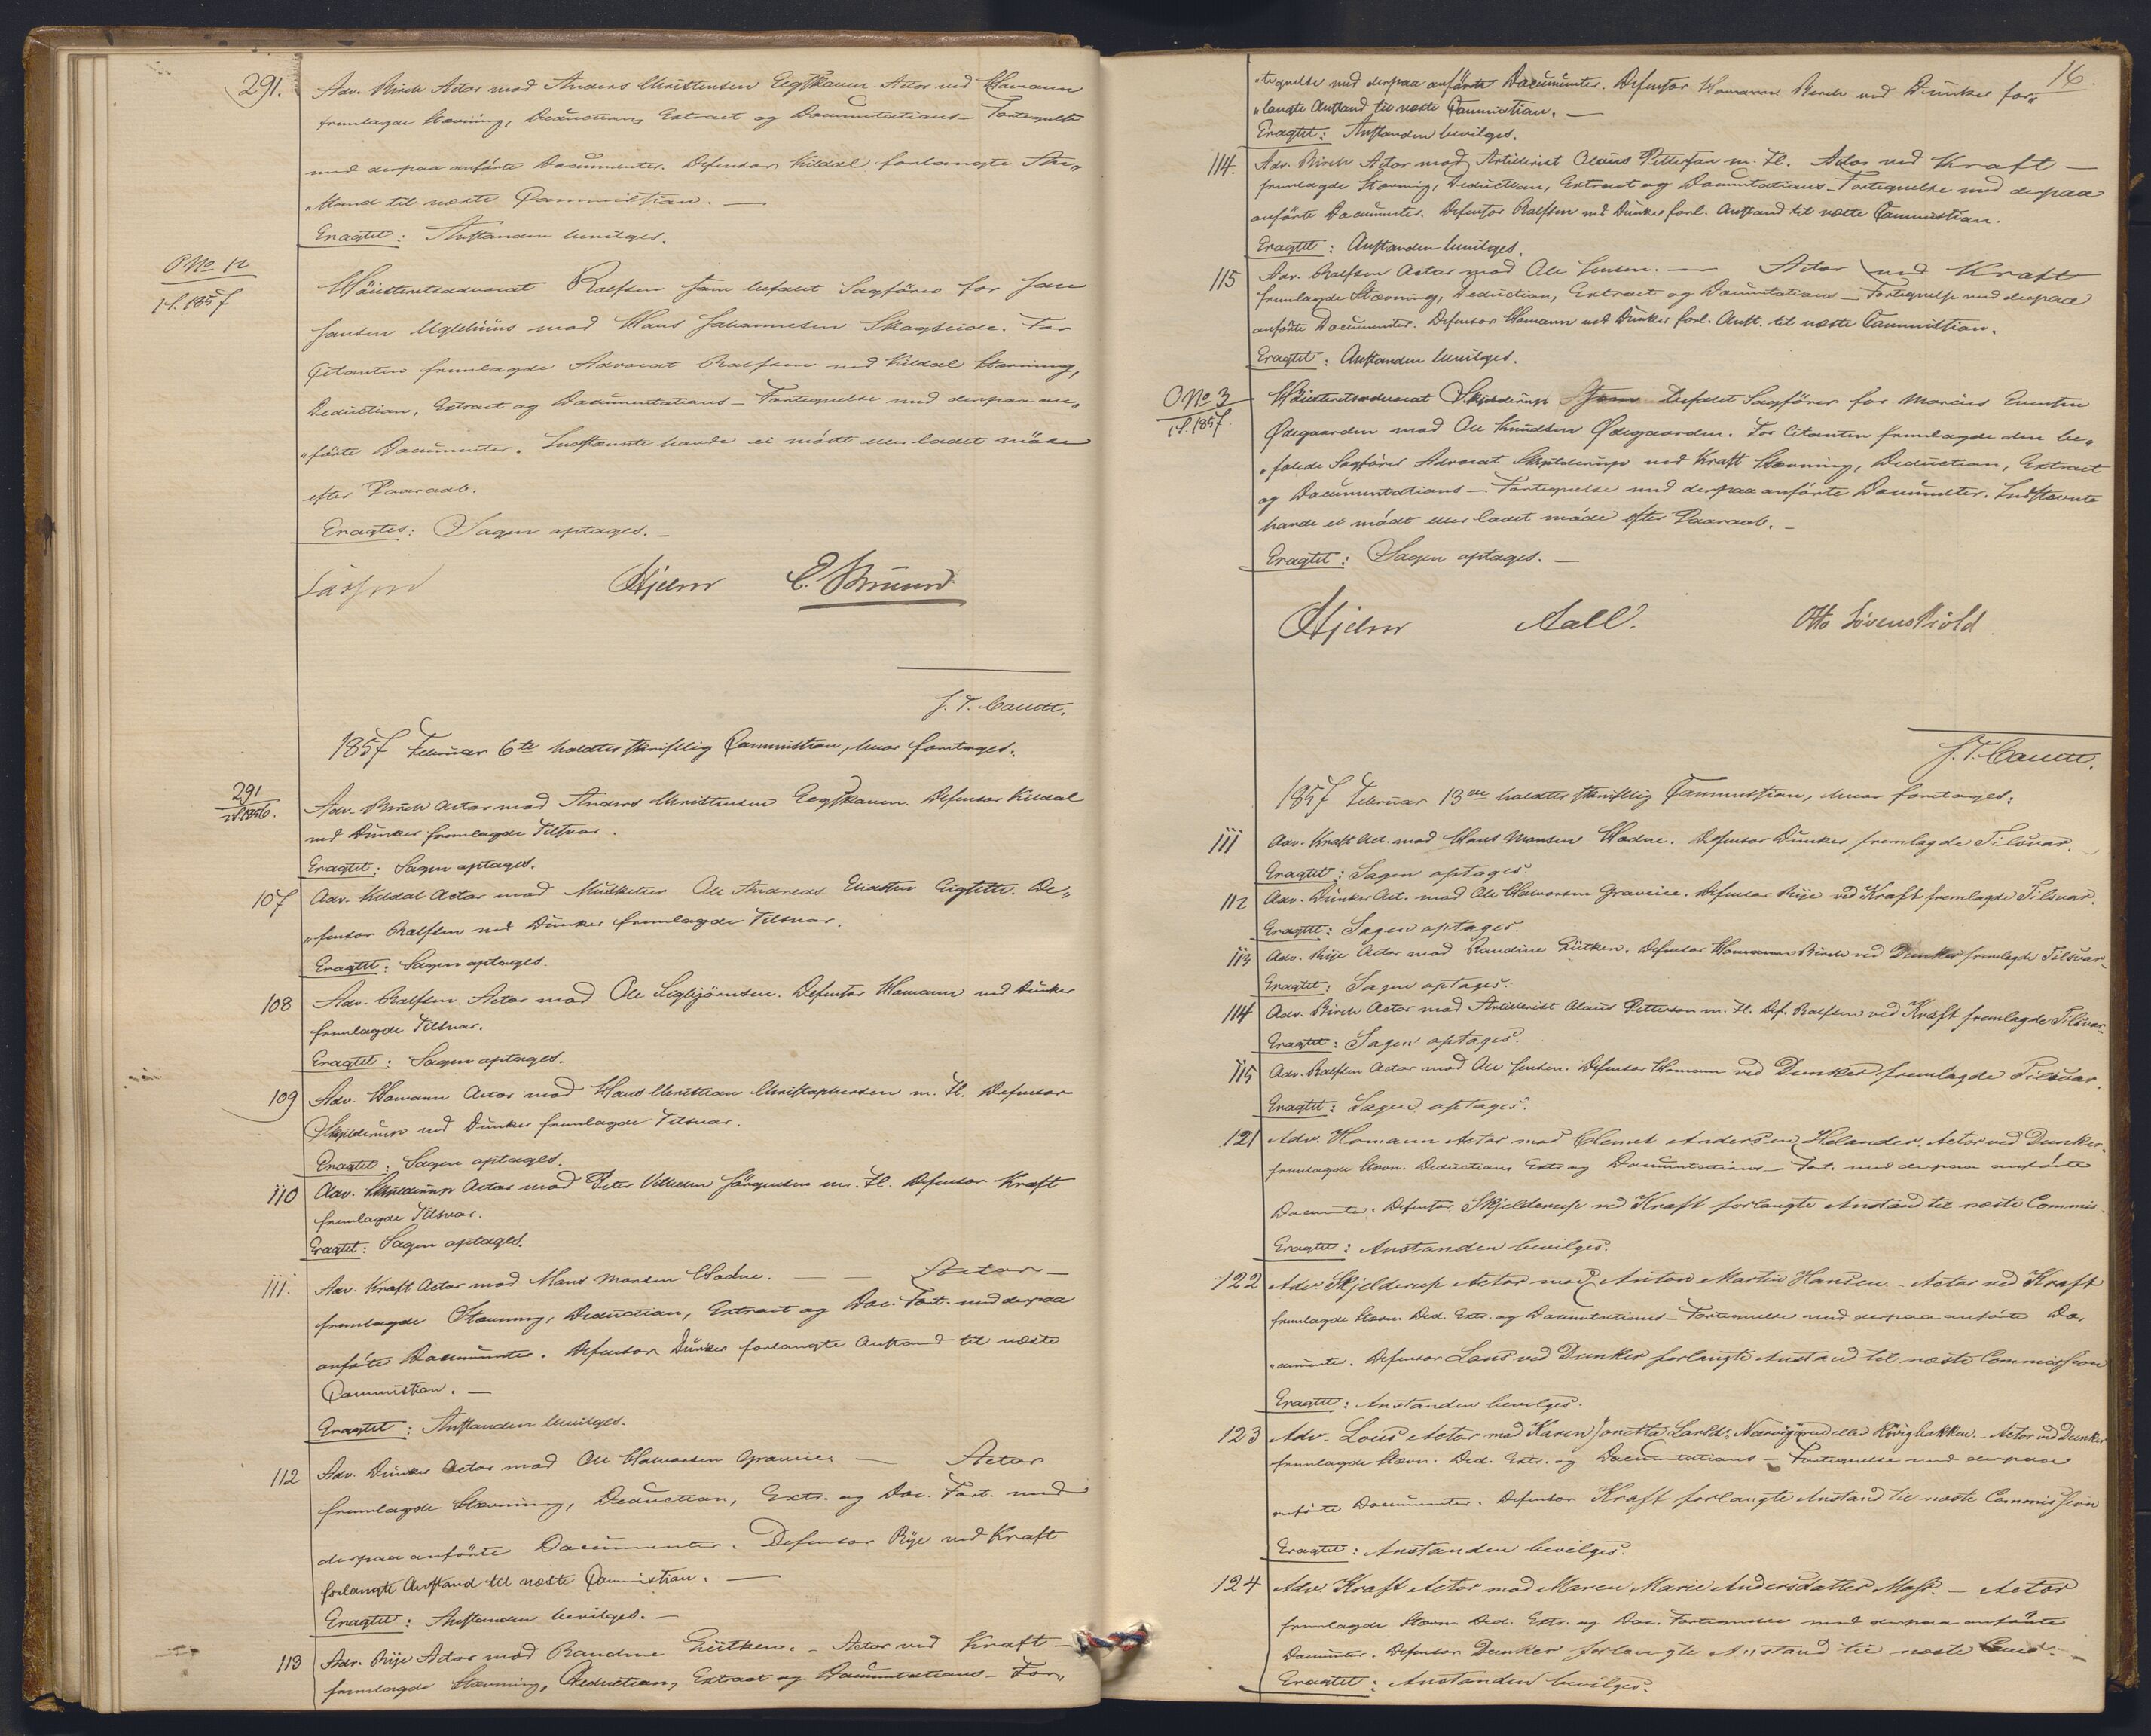 291. Adv. Birch Actor mod Anders Christensen Eegskauen Actor ved Homann
fremlagde Stævning, Deduction, Extract og Documentations- Fortegnelse
med derpaa anførte Documenter. Defensor Kildal forlangte An„
„stand til næste Commission. —
Eragtet: Anstanden bevilges.
O No 12
1 S. 1857
Høiesteretsadvocat Rolfsen som befalet Sagfører for Jan
Jansen Uglehuus mod Hans Johannesen Skogseide. For
Citanten fremlagde Advocat Rolfsen ved Kildal Stævning,
Deduction, Extract og Documentations- Fortegnelse med derpaa an„
„førte Documenter. Indstævnte havde ei mødt eller ladet møde
efter Paaraab.
Eragtes: Sagen optages. —
Lasson Hjelm C. Mmund
J. T. Caudt.
1857 Februar 6te holdtes skriftlig Commission, hvor foretoges:
291
2 S. 1856.
Adv. Birch Actor mod Anders Christensen Eegskauen. Defensor Kildal
ved Dunker fremlagde Tilsvar.
Eragtet: Sagen optages.
107 Adv. Kildal Actor mod Musketeer Ole Andreas Eliassen Eigtetø. De„
„fensor Rolfsen ved Dunker fremlagde Tilsvar.
Eragtet: Sagen optages.
108 Adv. Rolfsen Actor mod Ole Sigbjørnsen. Defensor Homann ved Dunker
fremlagde Tilsvar.
Eragtet: Sagen optages.
109 Adv. Homann Actor mod Hans Christian Christophersen m. Fl. Defensor
Skjelderup ved Dunker fremlagde Tilsvar.
Eragtet: Sagen optages.
110 Adv. Skjelderup Actor mod Peter Vilhelm Jørgensen m. Fl. Defensor Kraft
fremlagde Tilsvar.
Eragtet: Sagen optages.
111. Adv. Kraft Actor mod Hans Monsen Hodne. — — Actor —
fremlagde Stævning, Deduction, Extract og Doc. Fort. med derpaa
anførte Documenter. Defensor Dunker forlangte Anstand til næste
Commission. —
Eragtet: Anstanden bevilges.
112 Adv. Dunker Actor mod Ole Halvorsen Graveie. — Actor
fremlagde Stævning, Deduction, Extr. og Doc. Fort. med
derpaa anførte Documenter. Defensor Rye ved Kraft
forlangte Anstand til næste Commission. —
Eragtet: Anstanden bevilges. —
113 Adv. Rye Actor mod Randine Lütken. — Actor ved Kraft —
fremlagde Stævning, Deduction, Extract og Documentations- For„
16.
„tegnelse med derpaa anførte Documenter. Defensor Homann Birch ved Dunker for„
„langte Anstand til næste Commission. —
Eragtet: Anstanden bevilges.
114. Adv. Birch Actor mod Artillerist Claus Pettersen m. Fl. Actor ved Kraft —
fremlagde Stævning, Deduction, Extract og Documentations- Fortegnelse med derpaa
anførte Documenter. Defensor Rolfsen ved Dunker forl. Anstand til næste Commission.
Eragtet: Anstanden bevilges.
115 Adv. Rolfsen Actor mod Ole Jensen. — Actor ved Kraft
fremlagde Stævning, Deduction, Extract og Documentations- Fortegnelse med derpaa
anførte Documenter. Defensor Homann ved Dunker forl. Anst. til næste Commission.
Eragtet: Anstanden bevilges.
O No 3
1 S. 1857.
Høiesteretsadvocat Skjelderup som befalet Sagfører for Marcus Evensen
Ødegaarden mod Ole Knudsen Ødegaarden. For Citanten fremlagde den be„
„falede Sagfører Advocat Skjelderup ved Kraft Stævning, Deduction, Extract
og Documentations- Fortegnelse med derpaa anførte Documenter. Indstævnte
havde ei mødt eller ladet møde efter Paaraab. —
Eragtet: Sagen optages. —
Hjelm Aall. Otto Løvenskiold
J. T. Caudt.
1857 Februar 13de holdtes skriftlig Commission, hvor foretoges:
111 Adv. Kraft Act. mod Hans Monsen Hodne. Defensor Dunker fremlagde Tilsvar.
Eragtet: Sagen optages.
112 Adv. Dunker Act. mod Ole Halvorsen Graveie. Defensor Rye ved Kraft fremlagde Tilsvar.
Eragtet: Sagen optages.
113 Adv. Rye Actor mod Randine Lütken. Defensor Homann Birch ved Dunker fremlagde Tilsvar.
Eragtet: Sagen optages.
114 Adv. Birch Actor mod Artillerist Claus Pettersen m. Fl. Def. Rolfsen ved Kraft fremlagde Tilsvar.
Eragtet: Sagen optages.
115 Adv. Rolfsen Actor mod Ole Jensen. Defensor Homann ved Dunker fremlagde Tilsvar.
Eragtet: Sagen optages.
121 Adv. Homann Actor mod Clemet Andersen Helander. Actor ved Dunker.
fremlagde Stævn. Deductions Extr. og Documentations- Fort. med derpaa anførte
Documenter. Defensor Skjelderup ved Kraft forlangte Anstand til næste Commis-
Eragtet: Anstanden bevilges.
122 Adv. Skjelderup Actor mod Anton Martin Hansen. — Actor ved Kraft
fremlagde Stævn. Ded. Extr. og Documentations- Fortegnelse med derpaa anførte Do„
„cumenter. Defensor Lous ved Dunker forlangte Anstand til næste Commission
Eragtet: Anstanden bevilges.
123 Adv. Lous Actor mod Karen Jonetta Larsdr. eller — Actor ved Dunker
fremlagde Stævn. Ded. Extr. og Documentations- Fortegnelse med derpaa
anførte Documenter. Defensor Kraft forlangte Anstand til næste Commission
Eragtet: Anstanden bevilges.
124 Adv. Kraft Actor mod Maren Marie Andersdatter Moss. — Actor
fremlagde Stævn. Ded. Extr. og Doc. Fortegnelse med derpaa anførte
Documter. Defensor Dunker forlangte Anstand til næste
Eragtet: Anstanden bevilges.